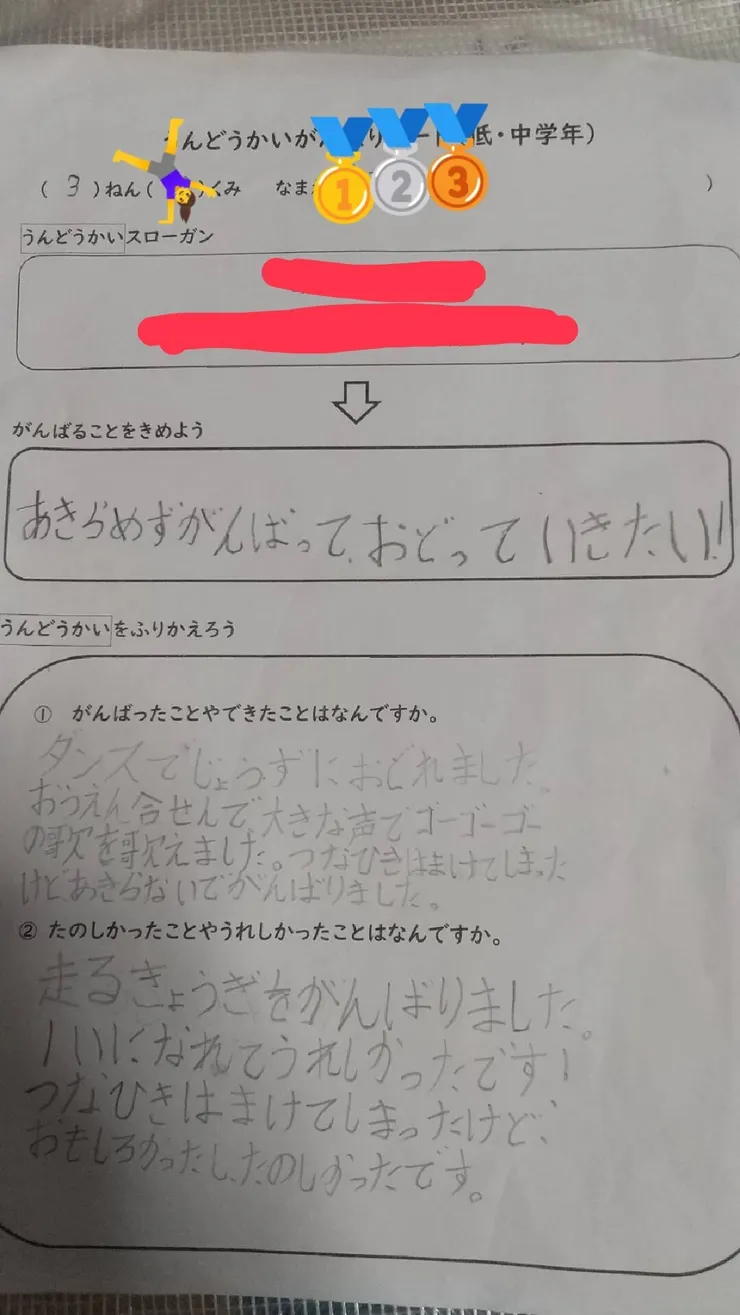 んどうかいが り 低・中学年)
( 3 )ねん( )くみ なま )
うんどうかいスローガン
がんばることをきめよう
あきらめずがんばって、おどっていきたい!!
うんどうかいをふりかえろう
① がんばったことやできたことはなんですか。
ダンスでじょうずにおどれました。
おうえん合せんで、大きな声でゴーゴーゴー
の歌を歌えました。つなひきはまけてしまった
けどあきらないでがんばりました。
② たのしかったことやうれしかったことはなんですか。
走るきょうぎをがんばりました。
1いになれてうれしかったです!
つなひきはまけてしまったけど、
おもしろかったし、たのしかったです。